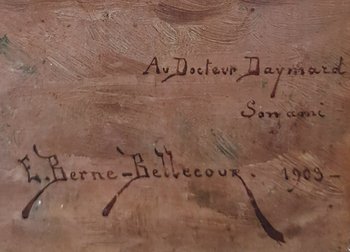 Au Docteur Daymard
Son ami
E. Berne-Bellecour. 1903-